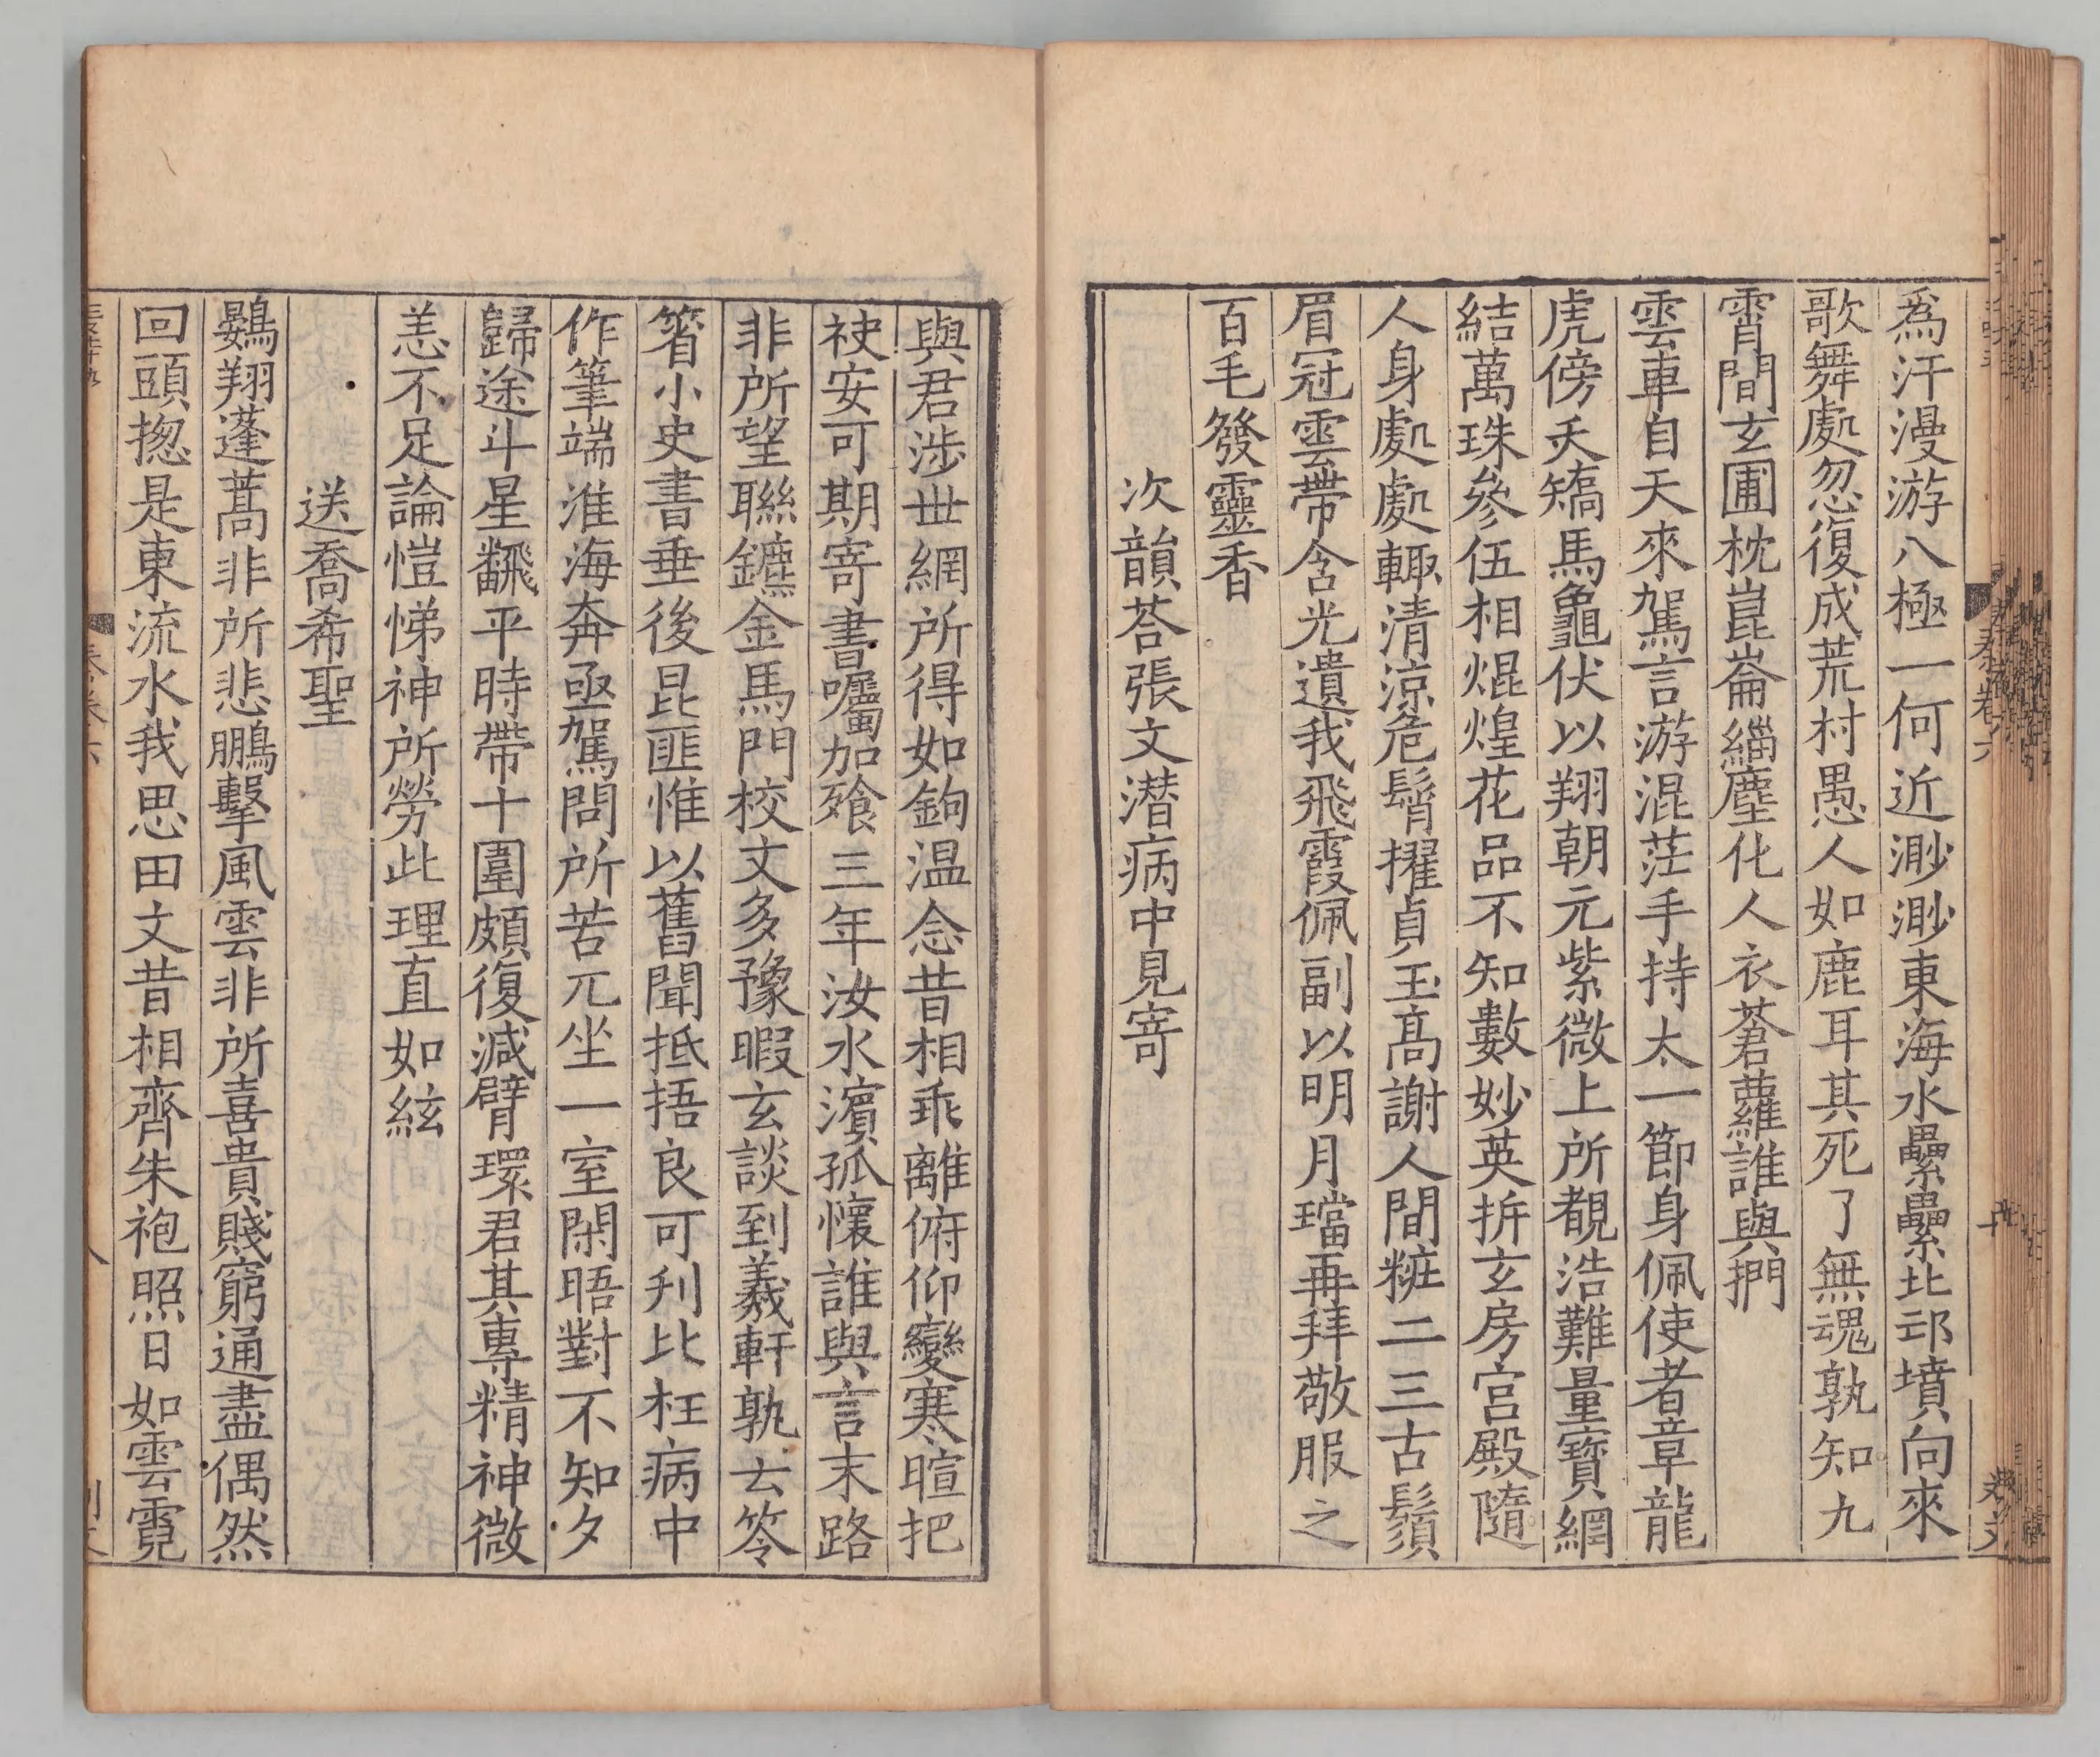 爲汗漫游八極一何近渺渺東海水纍纍北邙墳向來
歌舞處忽復成荒村愚人如鹿耳其死了無魂孰知九
霄間玄圃枕崑崙緇塵化人衣蒼蘿誰與捫
雲車自天來駕言游混茫手持太一節身佩使者章龍
虎傍夭矯馬龜伏以翔朝元紫微上所覩浩難量寶網
結萬珠參伍相焜煌花品不知數妙英拆玄房宫殿隨
人身處處輙清涼危髾擢貞玉高謝人間粧二三古鬚
眉冠雲帶含光遺我飛霞佩副以明月璫再拜敬服之
百毛發靈香
次韻荅張文潜病中見寄
與君涉世網所得如鉤温念昔相乖離俯仰變寒暄把
袂安可期寄書囑加飱三年汝水濵孤懷誰與言末路
非所望聯鑣金馬門校文多豫暇玄談到羲軒孰云笭
箵小史書垂後昆匪惟以舊聞抵捂良可刋比枉病中
作筆端淮海奔亟駕問所苦兀坐一室閑晤對不知夕
歸途斗星飜平時帶十圍頗復減臂環君其專精神微
恙不足論愷悌神所勞此理直如絃
送喬希聖
鷃翔蓬蒿非所悲鵬擊風雲非所喜貴賤窮通盡偶然
回頭揔是東流水我思田文昔相齊朱袍照日如雲霓